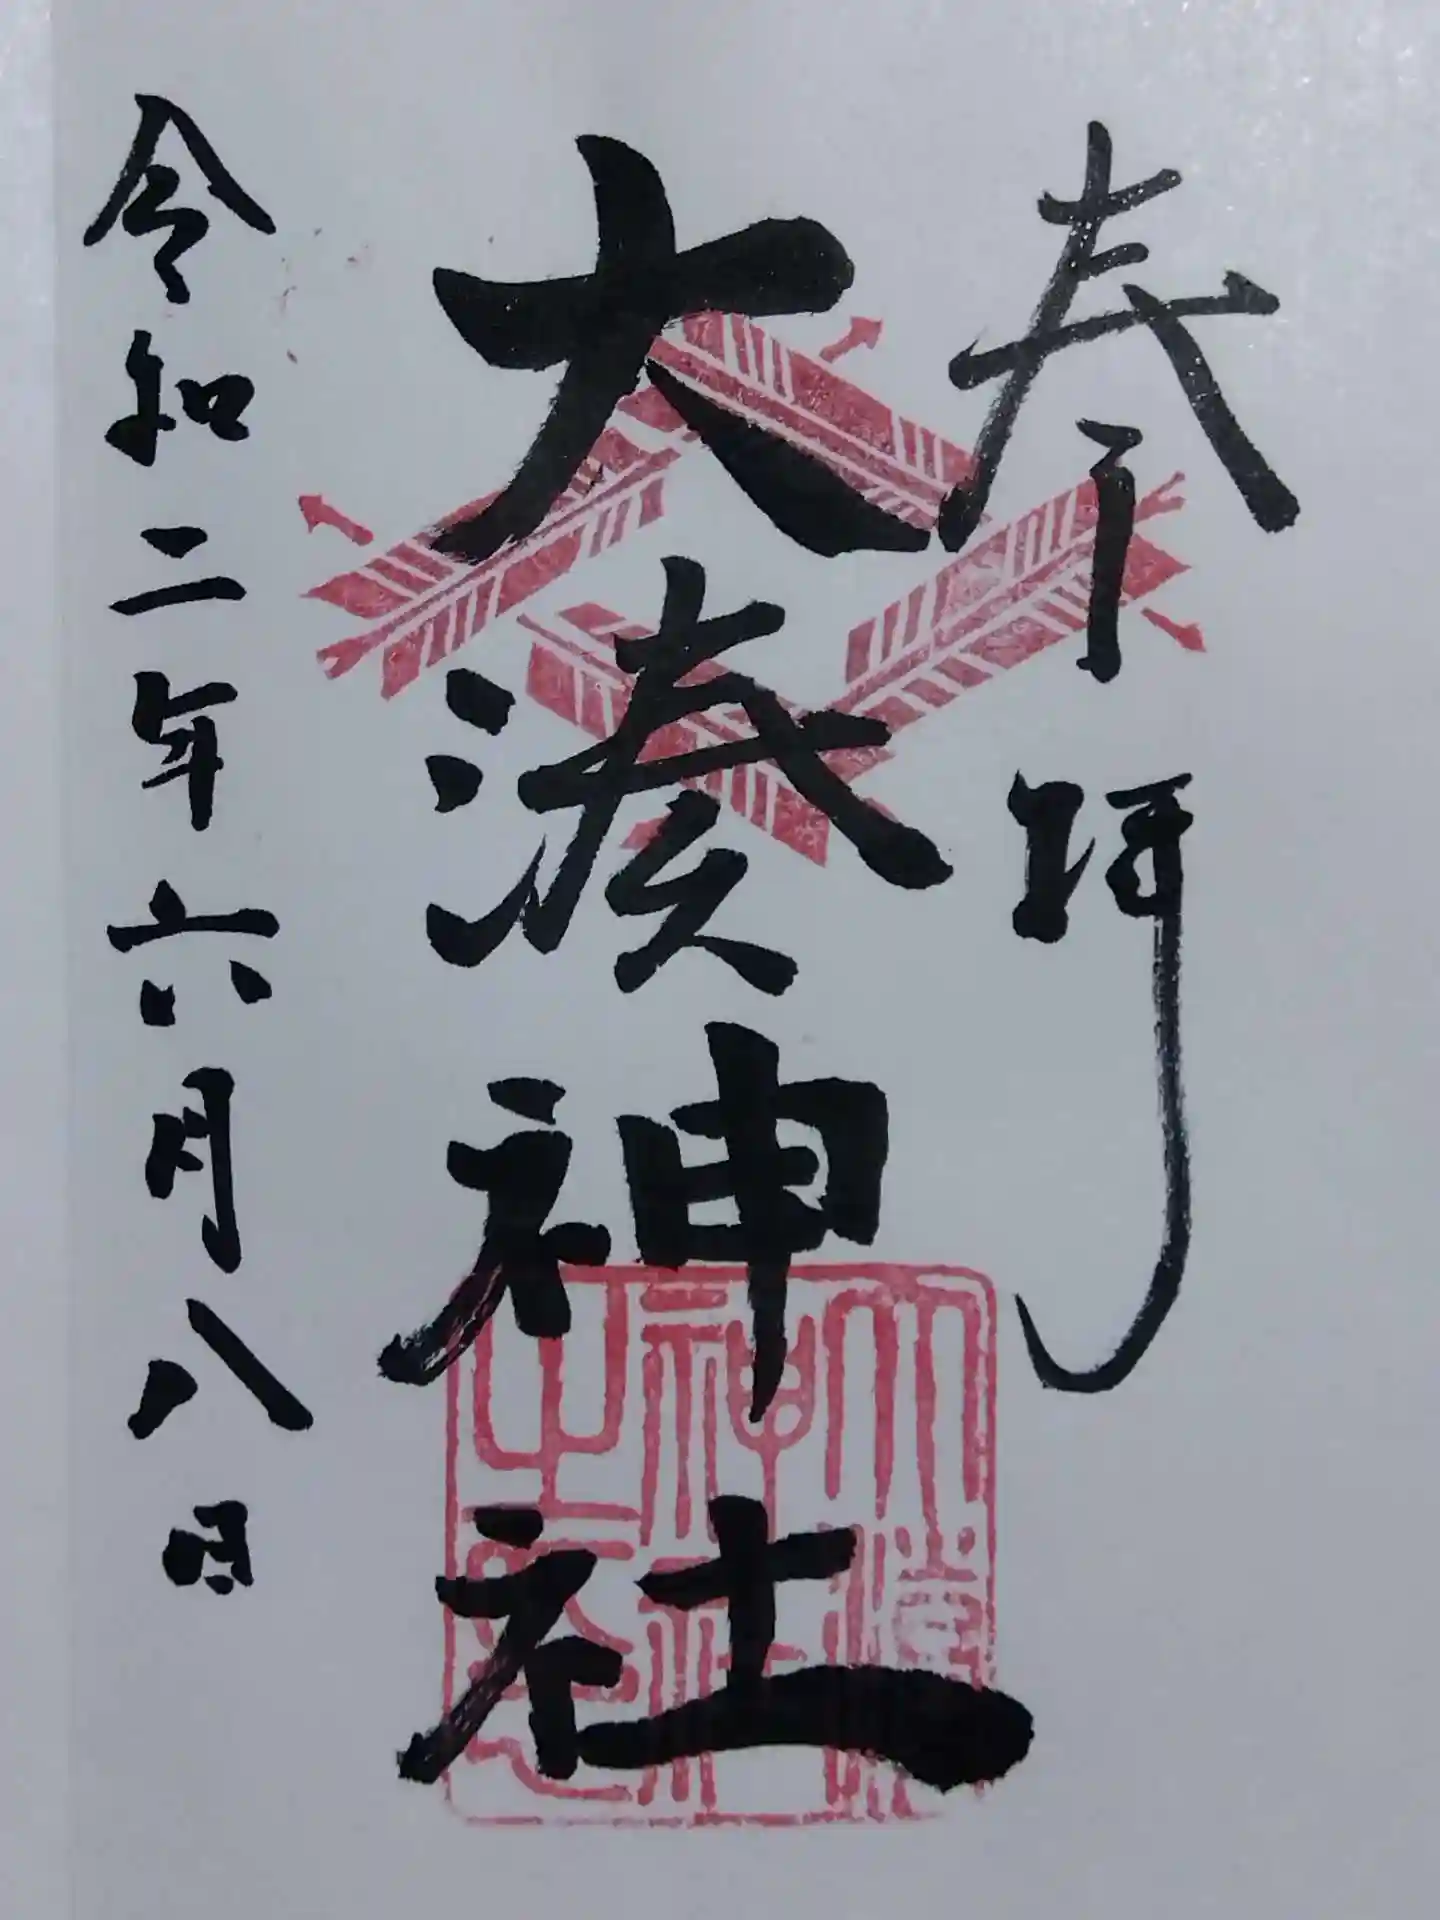 奉拝
大湊神社
令和二年六月八日
大湊神社之印